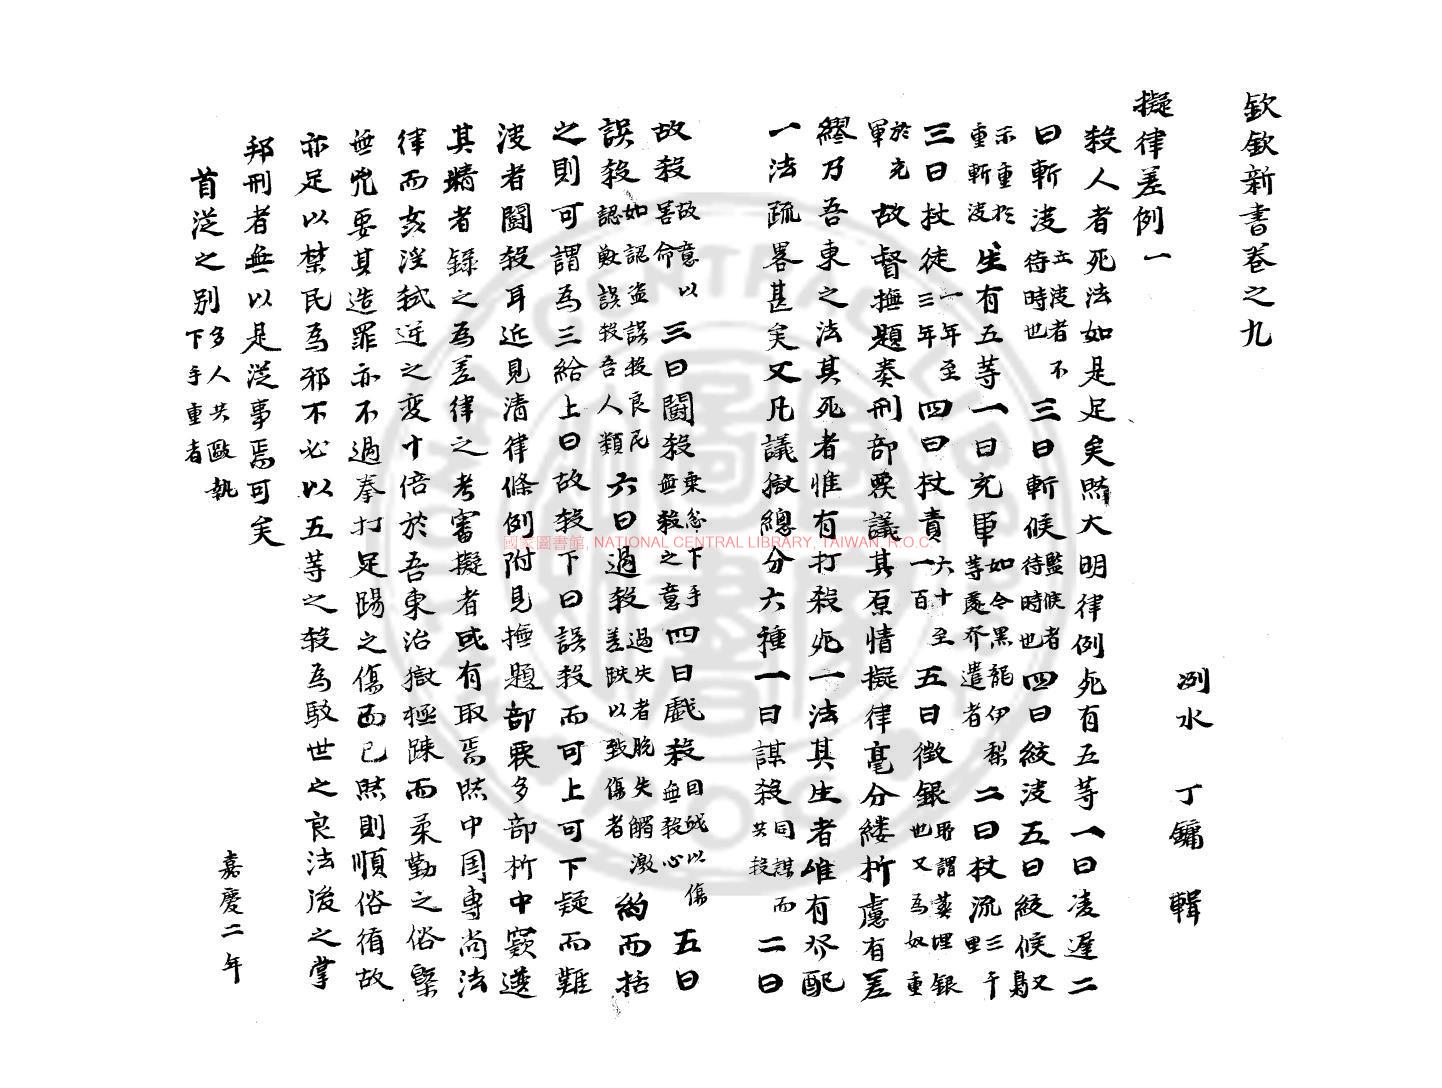 欽欽新書卷之九
洌水 丁鏞 輯
擬律差例一
殺人者死法如是足矣然大明律例死有五等一曰凌遲二
曰斬決立決者不待時也三曰斬候監候者待時也四曰絞決五曰絞候駁又
示重於重斬決生有五等一曰充軍如今黑龍伊犁等處芥遣者二曰杖流三千里
三曰杖徒一年至三年四曰杖責六十至一百五曰徵銀所謂葬埋銀也又為奴重
於充軍故督撫題奏刑部覆議其原情擬律毫分縷析慮有差
繆乃吾東之法其死者惟有打殺死一法其生者唯有發配
一法疏畧甚矣又凡議獄總分六種一曰謀殺同謀而共殺二曰
故殺故意以害命三曰鬪殺乘忿下手無殺之意四曰戲殺因戲以傷無殺心五曰
誤殺如認盜誤殺良民認獸誤殺吾人類六曰過殺過失者脫失觸激差跌以致傷者約而括
之則可謂為三給上曰故殺下曰誤殺而可上可下疑而難
決者鬪殺耳近見清律條例附見撫題部覆多部析中窾選
其精者錄之為差律之考審擬者或有取焉然中国專尚法
律而亥淫弒逆之变十倍於吾東治獄極疎而柔勤之俗槩
無兇要其造罪亦不過拳打足踢之傷而已然則順俗循故
亦足以禁民為邪不必以五等之殺為駁世之良法後之掌
邦刑者無以是從事焉可矣
首從之別多人共毆執下手重者
嘉慶二年
國家圖書館, NATIONAL CENTRAL LIBRARY, TAIWAN, R.O.C.